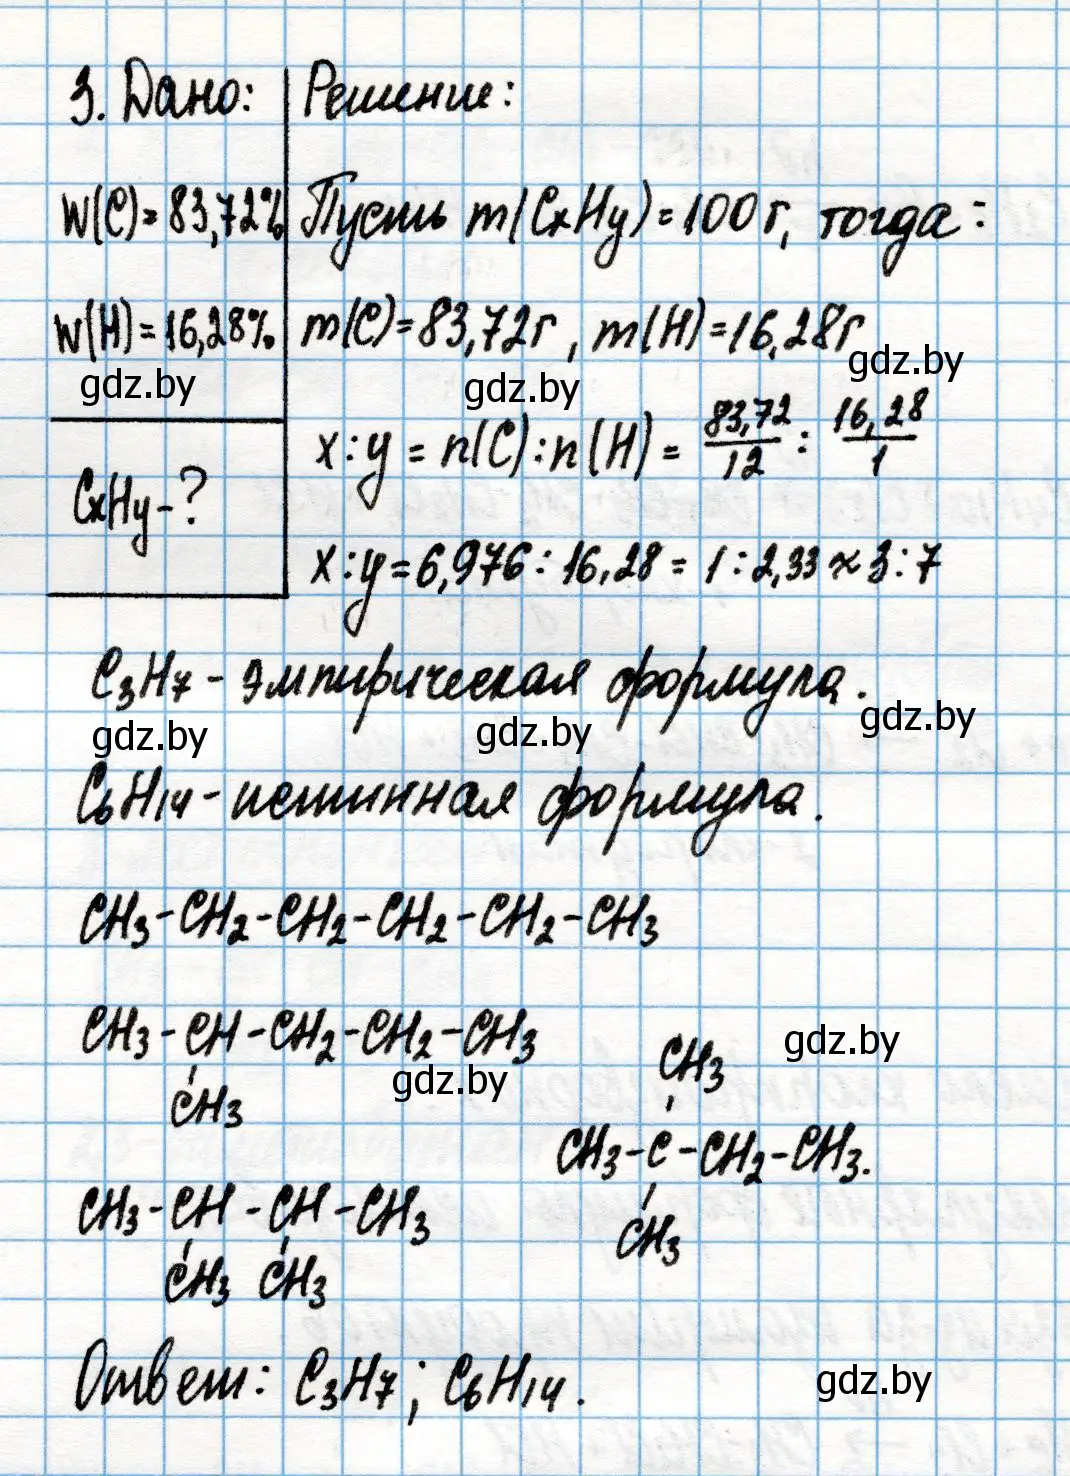 3. Дано: Решение:
W(C)=83,72% Пусть m(CxHy)=100г, тогда:
W(H)=16,28% m(C)=83,72г, m(H)=16,28г
gdz.by gdz.by gdz.by
CxHy-? x:y = n(C):n(H) = 83,72/12 : 16,28/1
x:y=6,976:16,28 = 1:2,33 ≈ 3:7
C3H7 - эмпирическая формула.
gdz.by gdz.by gdz.by
C6H14 - истинная формула.
CH3-CH2-CH2-CH2-CH2-CH3
CH3-CH-CH2-CH2-CH3
CH3
gdz.by gdz.by
CH3
CH3-C-CH2-CH3.
CH3
CH3-CH-CH-CH3
CH3 CH3
Ответ: C3H7; C6H14.
gdz.by